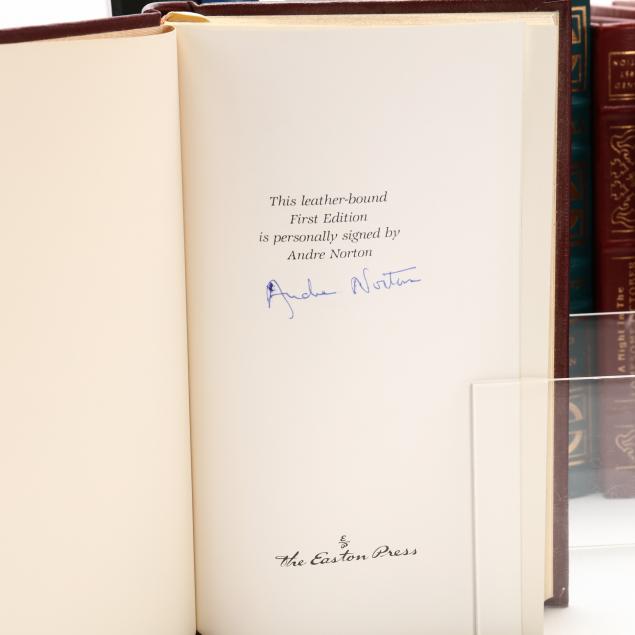 This leather-bound
First Edition
is personally signed by
Andre Norton
Andre Norton
the Easton Press
A Night In The